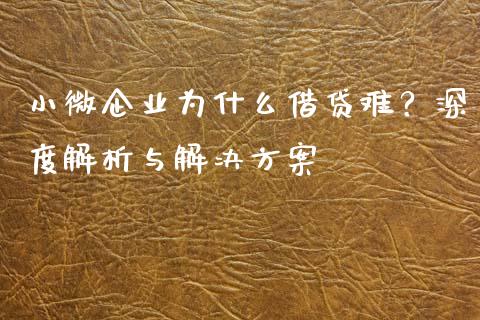 小微企业为什么借贷难？深
度解析与解决方案